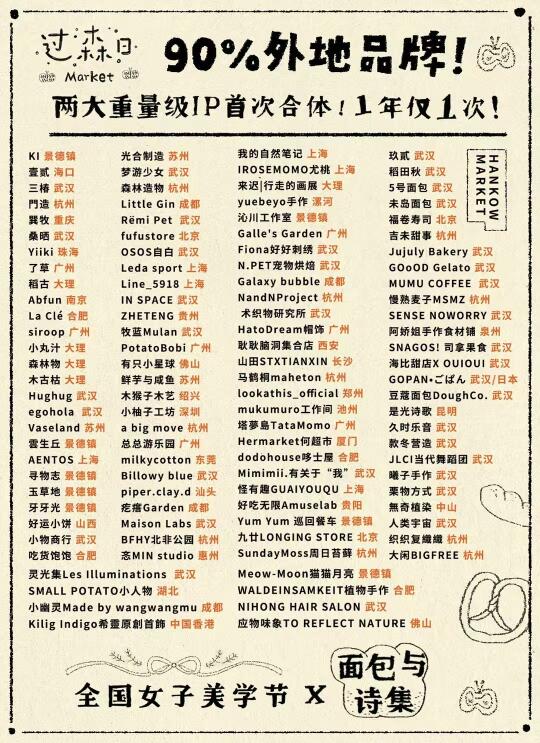 过森日
Market
90%外地品牌!
两大重量级IP首次合体!1年仅1次!
KI 景德镇
壹贰 海口
三椿 武汉
門造 杭州
巽牧 重庆
桑晒 武汉
Yiiki 珠海
了草 广州
稻古 大理
Abfun 南京
La Clé 合肥
siroop 广州
小丸汁 大理
森林物 大理
木古枯 大理
Hughug 武汉
egohola 武汉
Vaseland 苏州
雲生丘 景德镇
AENTOS 上海
寻物志 景德镇
玉草地 景德镇
牙牙光 景德镇
好运小饼 山西
小物商行 武汉
吃货饱饱 合肥
光合制造 苏州
梦游少女 武汉
森林造物 杭州
Little Gin 成都
Rëmi Pet 武汉
fufustore 北京
OSOS自自 武汉
Leda sport 上海
Line_5918 上海
IN SPACE 武汉
ZHETENG 贵州
牧蓝Mulan 武汉
PotatoBobi 广州
有只小星球 佛山
鲜芋与咸鱼 苏州
木猴子木艺 绍兴
小柚子工坊 深圳
a big move 杭州
总总游乐园 广州
milkycotton 东莞
Billowy blue 武汉
piper.clay.d 汕头
疙瘩Garden 成都
Maison Labs 武汉
BFHY北非公园 杭州
忞MIN studio 惠州
我的自然笔记 上海
IROSEMOMO尤桃 上海
来迟|行走的画展 大理
yuebeyo手作 漯河
沁川工作室 景德镇
Galle's Garden 广州
Fiona好好刺绣 武汉
N.PET宠物烘焙 武汉
Galaxy bubble 成都
NandNProject 杭州
术织物研究所 武汉
HatoDream帽饰 广州
耿耿脑洞集合店 西安
山田STXTIANXIN 长沙
马鹤桐maheton 杭州
lookathis_official 郑州
mukumuro工作间 池州
塔夢島TataMomo 广州
Hermarket何超市 厦门
dodohouse哆士屋 合肥
Mimimii.有关于“我” 武汉
怪有趣GUAIYOUQU 上海
好吃无限Amuselab 贵阳
Yum Yum 巡回餐车 景德镇
九廿LONGING STORE 北京
SundayMoss周日苔藓 杭州
玖贰 武汉
稻田秋 武汉
5号面包 武汉
未岛面包 武汉
福卷寿司 北京
吉未甜事 杭州
Jujuly Bakery 武汉
GOoOD Gelato 武汉
MUMU COFFEE 武汉
慢熟麦子MSMZ 杭州
SENSE NOWORRY 武汉
阿娇姐手作食材铺 泉州
SNAGOS! 司拿果食 武汉
海比甜店X OUIOUI 武汉
GOPAN•ごぱん 武汉/日本
豆蔻面包DoughCo. 武汉
是光诗歌 昆明
久时乐音 武汉
款冬营造 武汉
JLCI当代舞蹈团 武汉
曦子手作 武汉
栗物方式 武汉
無奇植染 中山
人类宇宙 武汉
织织复纖纖 杭州
大闲BIGFREE 杭州
HANKOW
MARKET
灵光集Les Illuminations 武汉
SMALL POTATO小人物 湖北
小幽灵Made by wangwangmu 成都
Kilig Indigo希靈原創首飾 中国香港
Meow-Moon猫猫月亮 景德镇
WALDEINSAMKEIT植物手作 合肥
NIHONG HAIR SALON 武汉
应物味象TO REFLECT NATURE 佛山
全国女子美学节 X 面包与
诗集